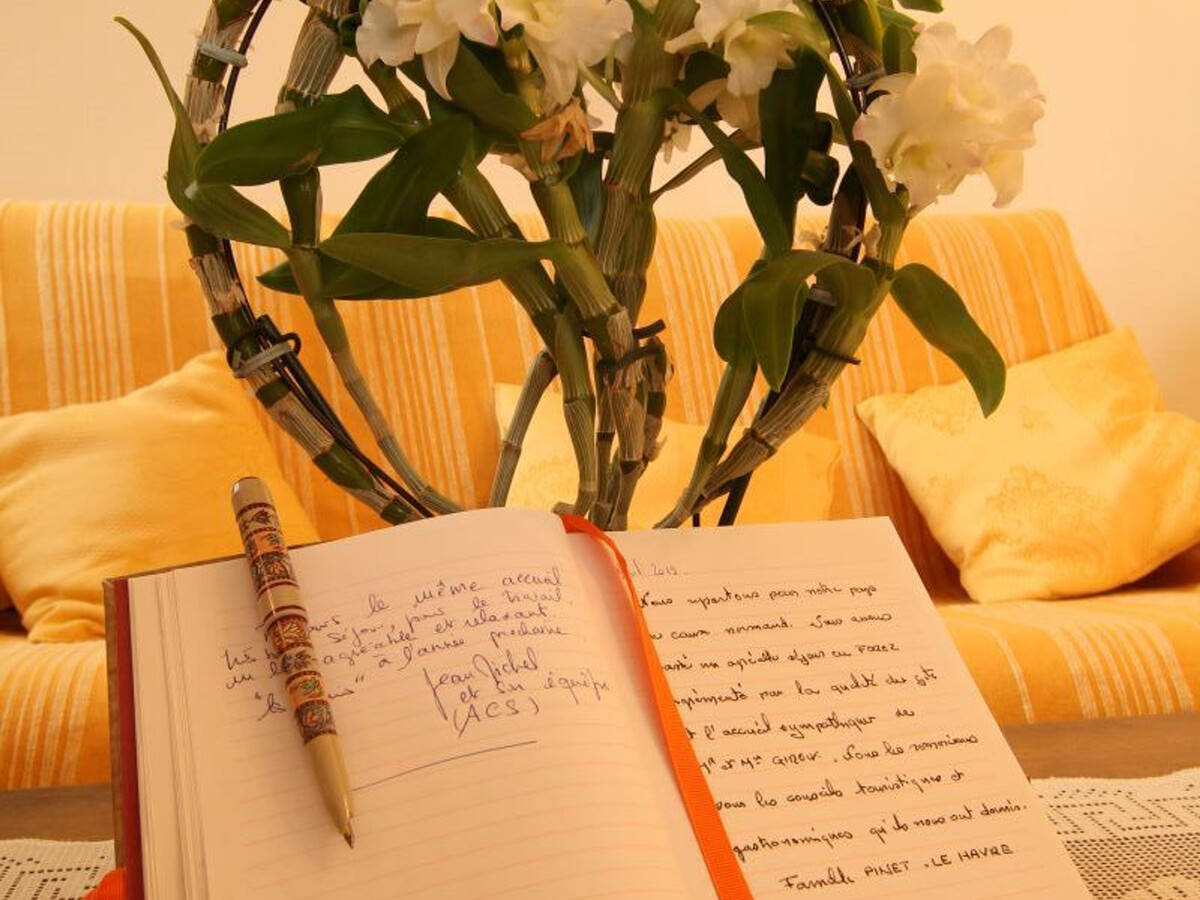 le même accueil
séjour, pour le travail
agréable et relaxant.
à l'année prochaine
Jean Michel
et son équipe
(ACS)
2019.
Nous repartons pour notre pays
normand. Nous avons
un agréable séjour en FOREZ
par la qualité du gîte
l'accueil sympathique de
et Mme . Nous les remercions
les conseils touristiques et
gastronomiques qu'ils nous ont donnés.
Famille PINET - LE HAVRE